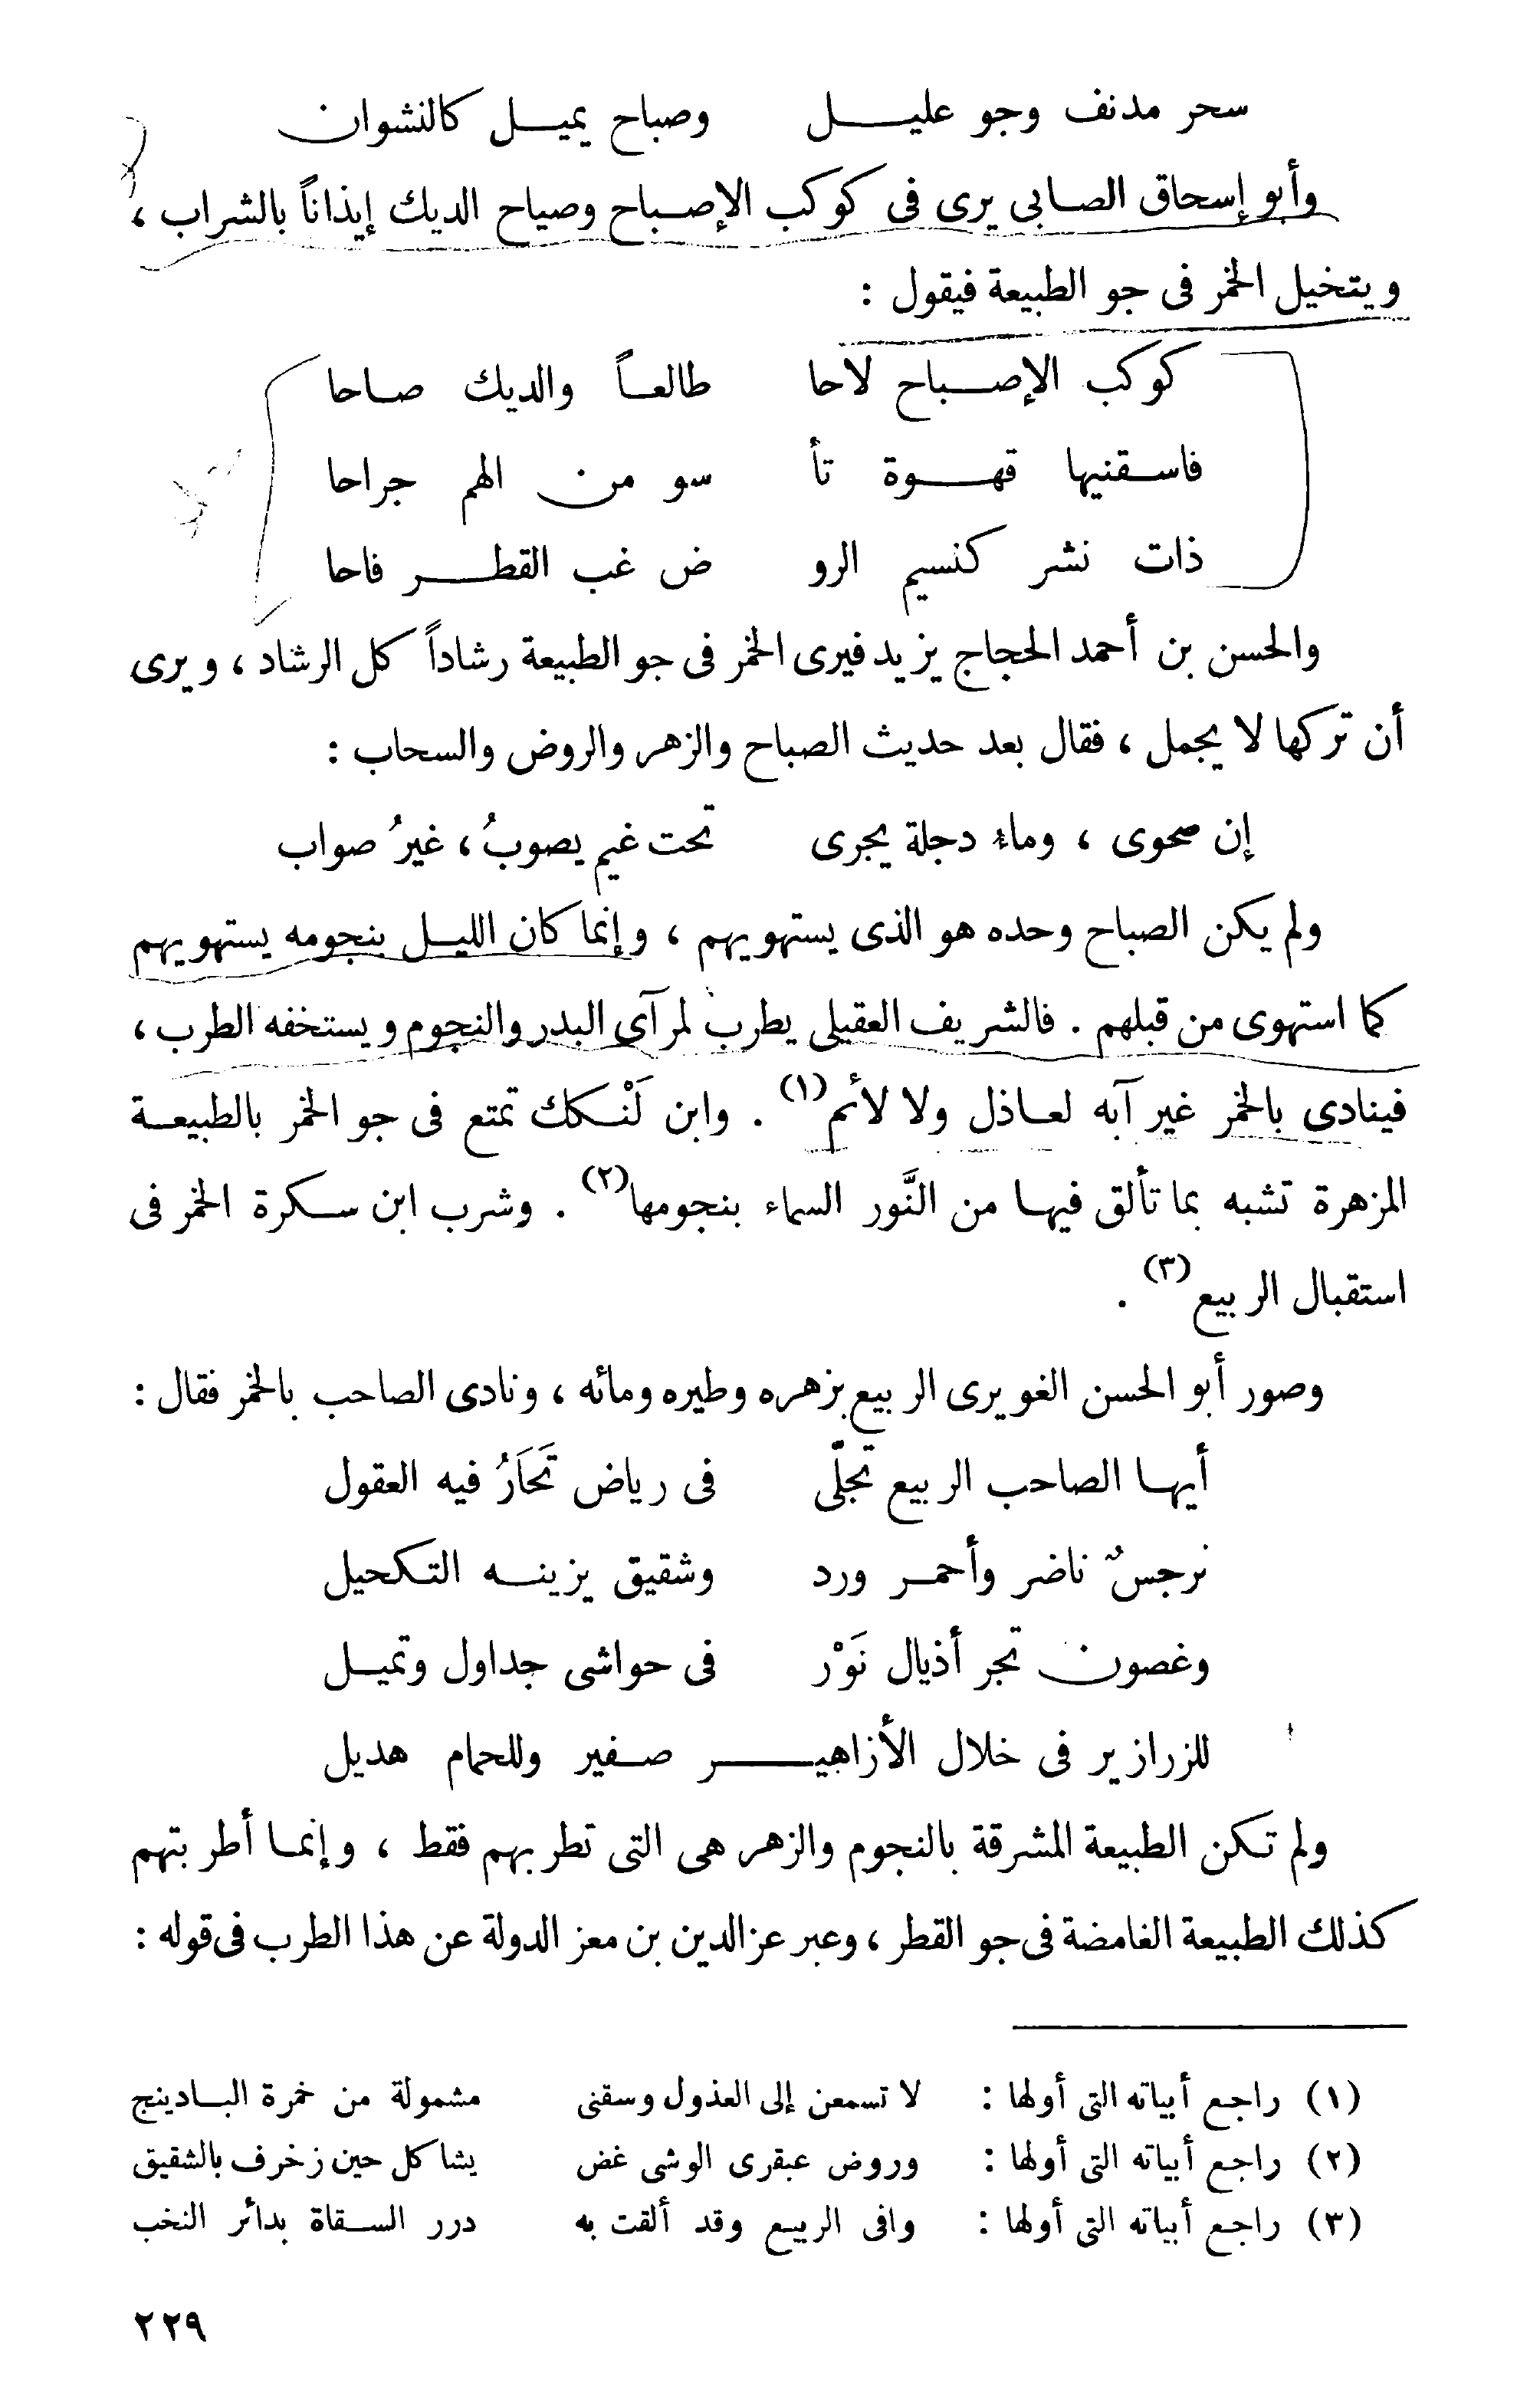 سحر مدنف وجو عليـــل وصباح يميـــل كالنشوان
وأبو إسحاق الصابى يرى فى كوكب الإصباح وصياح الديك إيذاناً بالشراب ،
ويتخيل الخمر فى جو الطبيعة فيقول :
كوكب الإصباح لاحا طالعاً والديك صاحا
فاسقنيها قهوة تأ سو من الهم جراحا
ذات نشر كنسيم الرو ض غب القطر فاحا
والحسن بن أحمد الحجاج يزيد فيرى الخمر فى جو الطبيعة رشاداً كل الرشاد ، ويرى
أن تركها لا يجمل ، فقال بعد حديث الصباح والزهر والروض والسحاب :
إن صحوى ، وماء دجلة يجرى تحت غيم يصوبُ ، غيرُ صواب
ولم يكن الصباح وحده هو الذى يستهويهم ، وإنما كان الليل بنجومه يستهويهم
كما استهوى من قبلهم . فالشريف العقيلى يطرب لمرآى البدر والنجوم ويستخفه الطرب ،
فينادى بالخمر غير آبه لعاذل ولا لأئم (١) . وابن لَنْكك تمتع فى جو الخمر بالطبيعة
المزهرة تشبه بما تألق فيها من النَّور السماء بنجومها (٢) . وشرب ابن سكرة الخمر فى
استقبال الربيع (٣) .
وصور أبو الحسن الغويرى الربيع بزهره وطيره ومائه ، ونادى الصاحب بالخمر فقال :
أيها الصاحب الربيع تجلّى فى رياض تَحَارُ فيه العقول
نرجسٌ ناضر وأحمر ورد وشقيق يزينه التكحيل
وغصون تجر أذيال نَوْر فى حواشى جداول وتميل
للزرازير فى خلال الأزاهير صفير وللحمام هديل
ولم تكن الطبيعة المشرقة بالنجوم والزهر هى التى تطربهم فقط ، وإنما أطربتهم
كذلك الطبيعة الغامضة فى جو القطر ، وعبر عز الدين بن معز الدولة عن هذا الطرب فى قوله :
(١) راجع أبياته التى أولها : لا تسمعن إلى العذول وسقنى مشمولة من خمرة البادينج
(٢) راجع أبياته التى أولها : وروض عبقرى الوشى غض يشاكل حين زخرف بالشقيق
(٣) راجع أبياته التى أولها : وافى الربيع وقد ألقت به درر السقاة بدائر النخب
٢٢٩